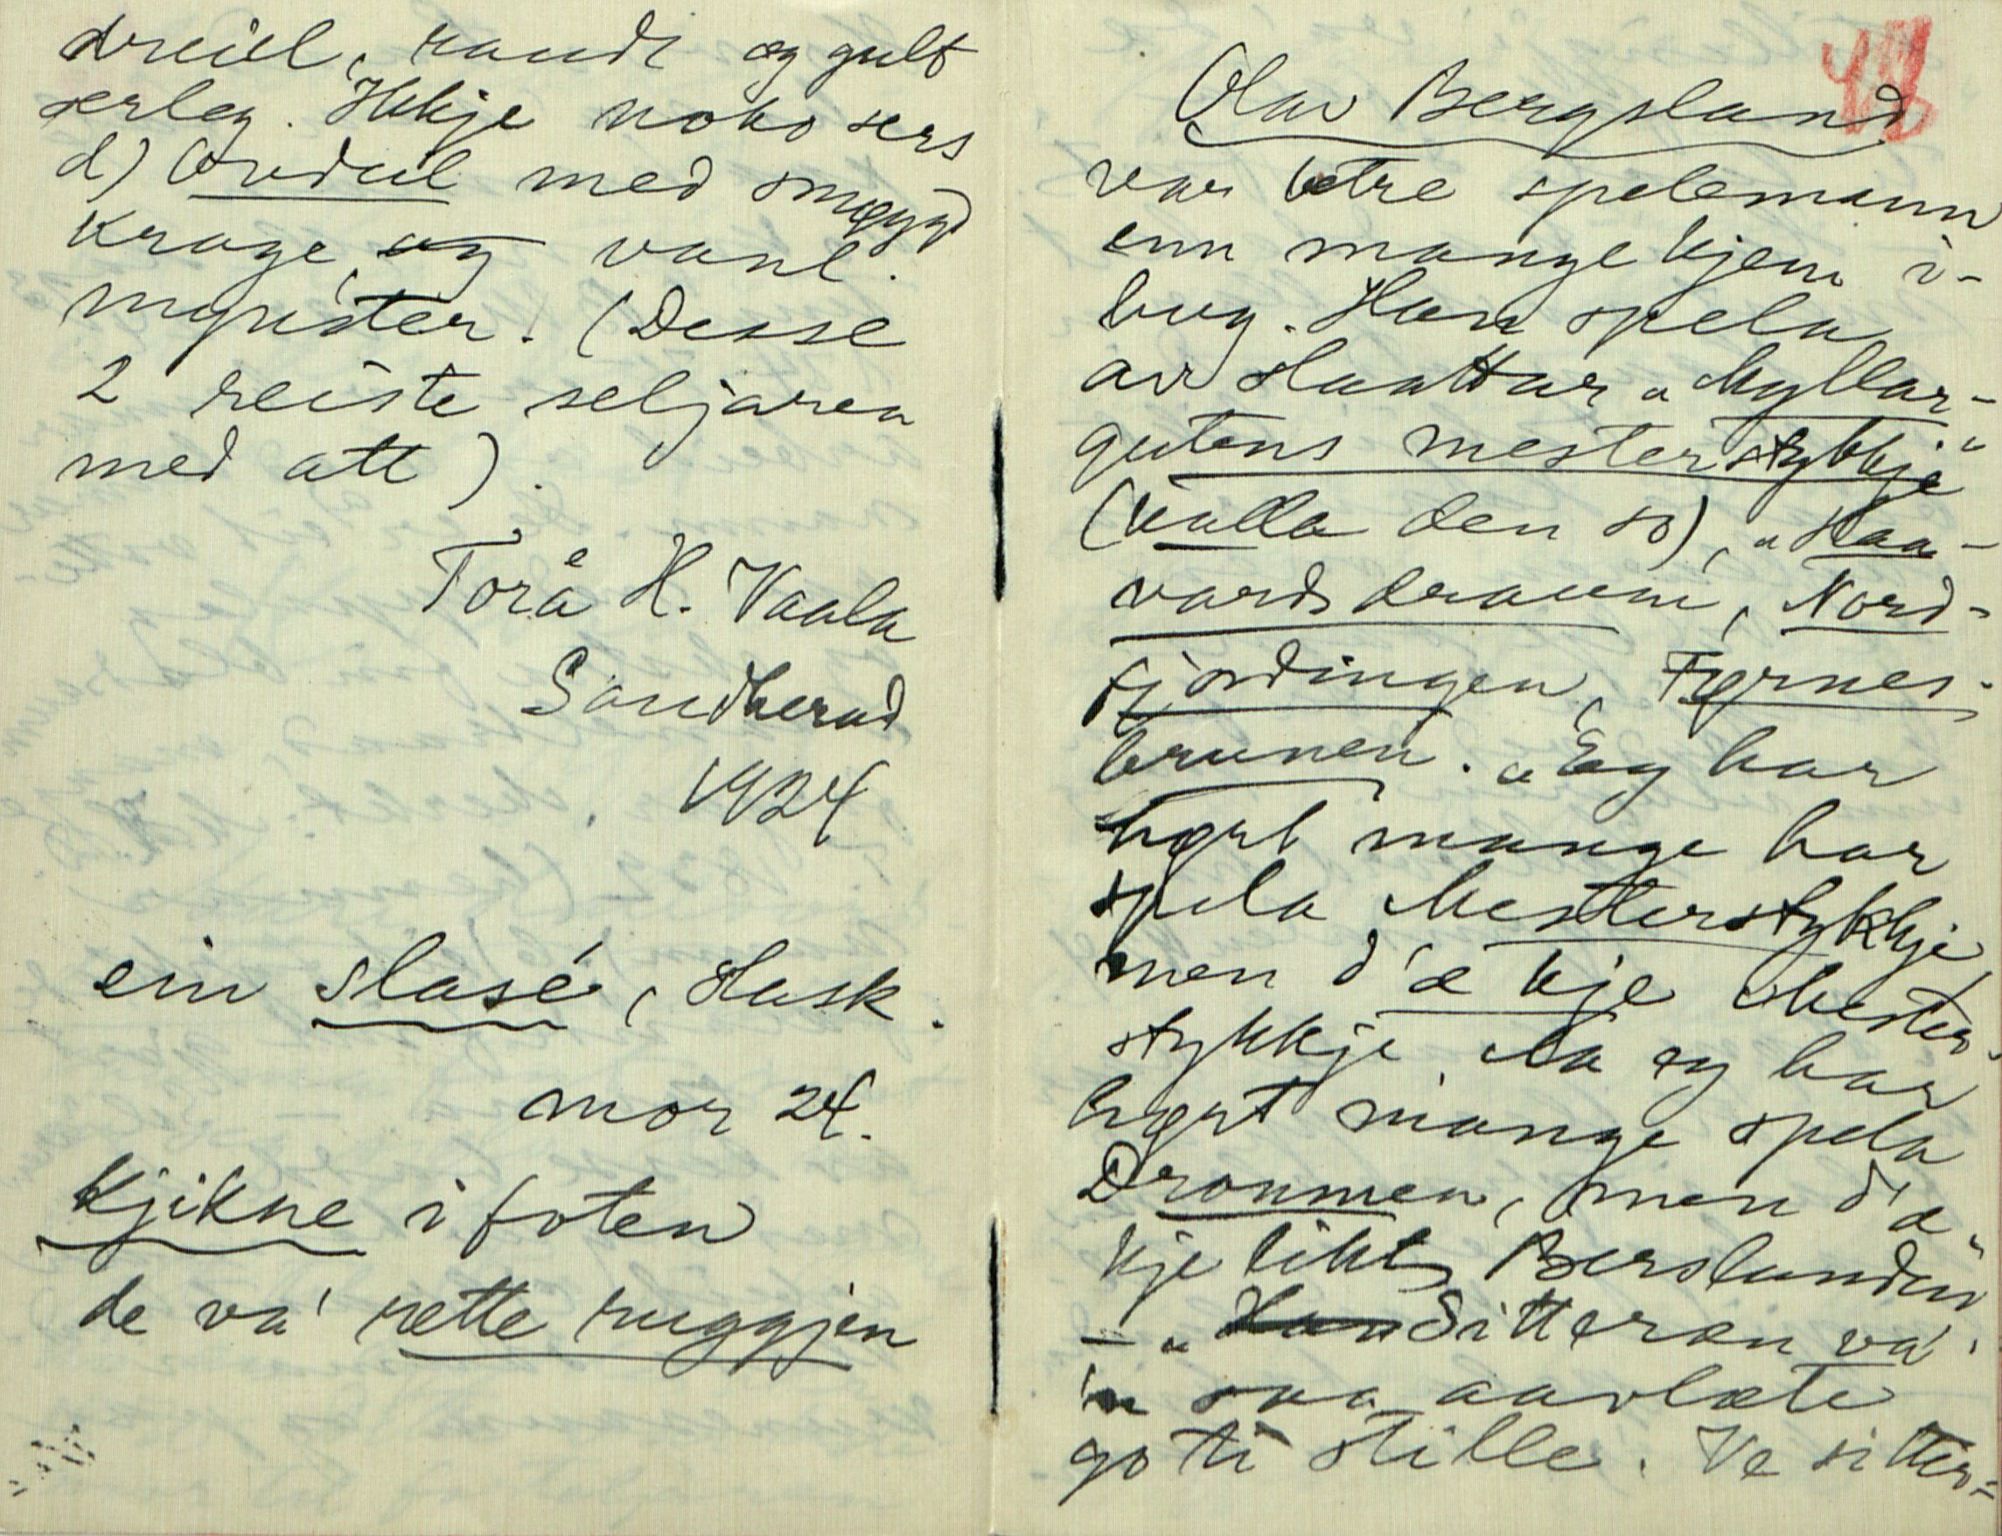 dreiel, raudt og gult
serleg. Ikkje noko sers
d) Ovdeil med smøygd
krage, og vanl.
mynster. (Desse
2 reiste seljaren
med att).
Torå H. Vaala
Sandherad
1924
ein slasé, slask.
mor 24.
kjikne i foten
de va' rette ruggjen
Olav Bergsland
var betre spelemann
enn mange kjem i-
hug. Han spela
av slaattar "Myllar-
gutens mesterstykkje"
(kalla den so), "Haa-
vards draumi, Nord-
fjordingen, Førnes-
brunen. "Eg har
høyrt mange har
spela Mesterstykkje,
men d'æ kje Mester-
stykkje. Aa eg har
høyrt mange spela
Dronmen, men d'æ
kje likt Berslanden"
– "Han Sitteran va
'n saa aavlæte
go ti stille. Ve sitter=